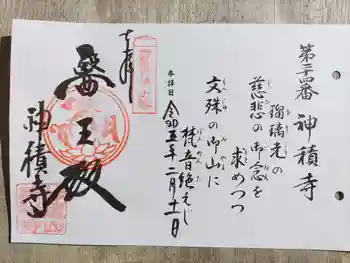 第二十四番 神積寺
瑠璃光の
慈悲の御念を
求めつつ
文殊の御山に
梵音絶えじ
本誦日 令和五年二月十一日
奉拝
醫王殿
神積寺